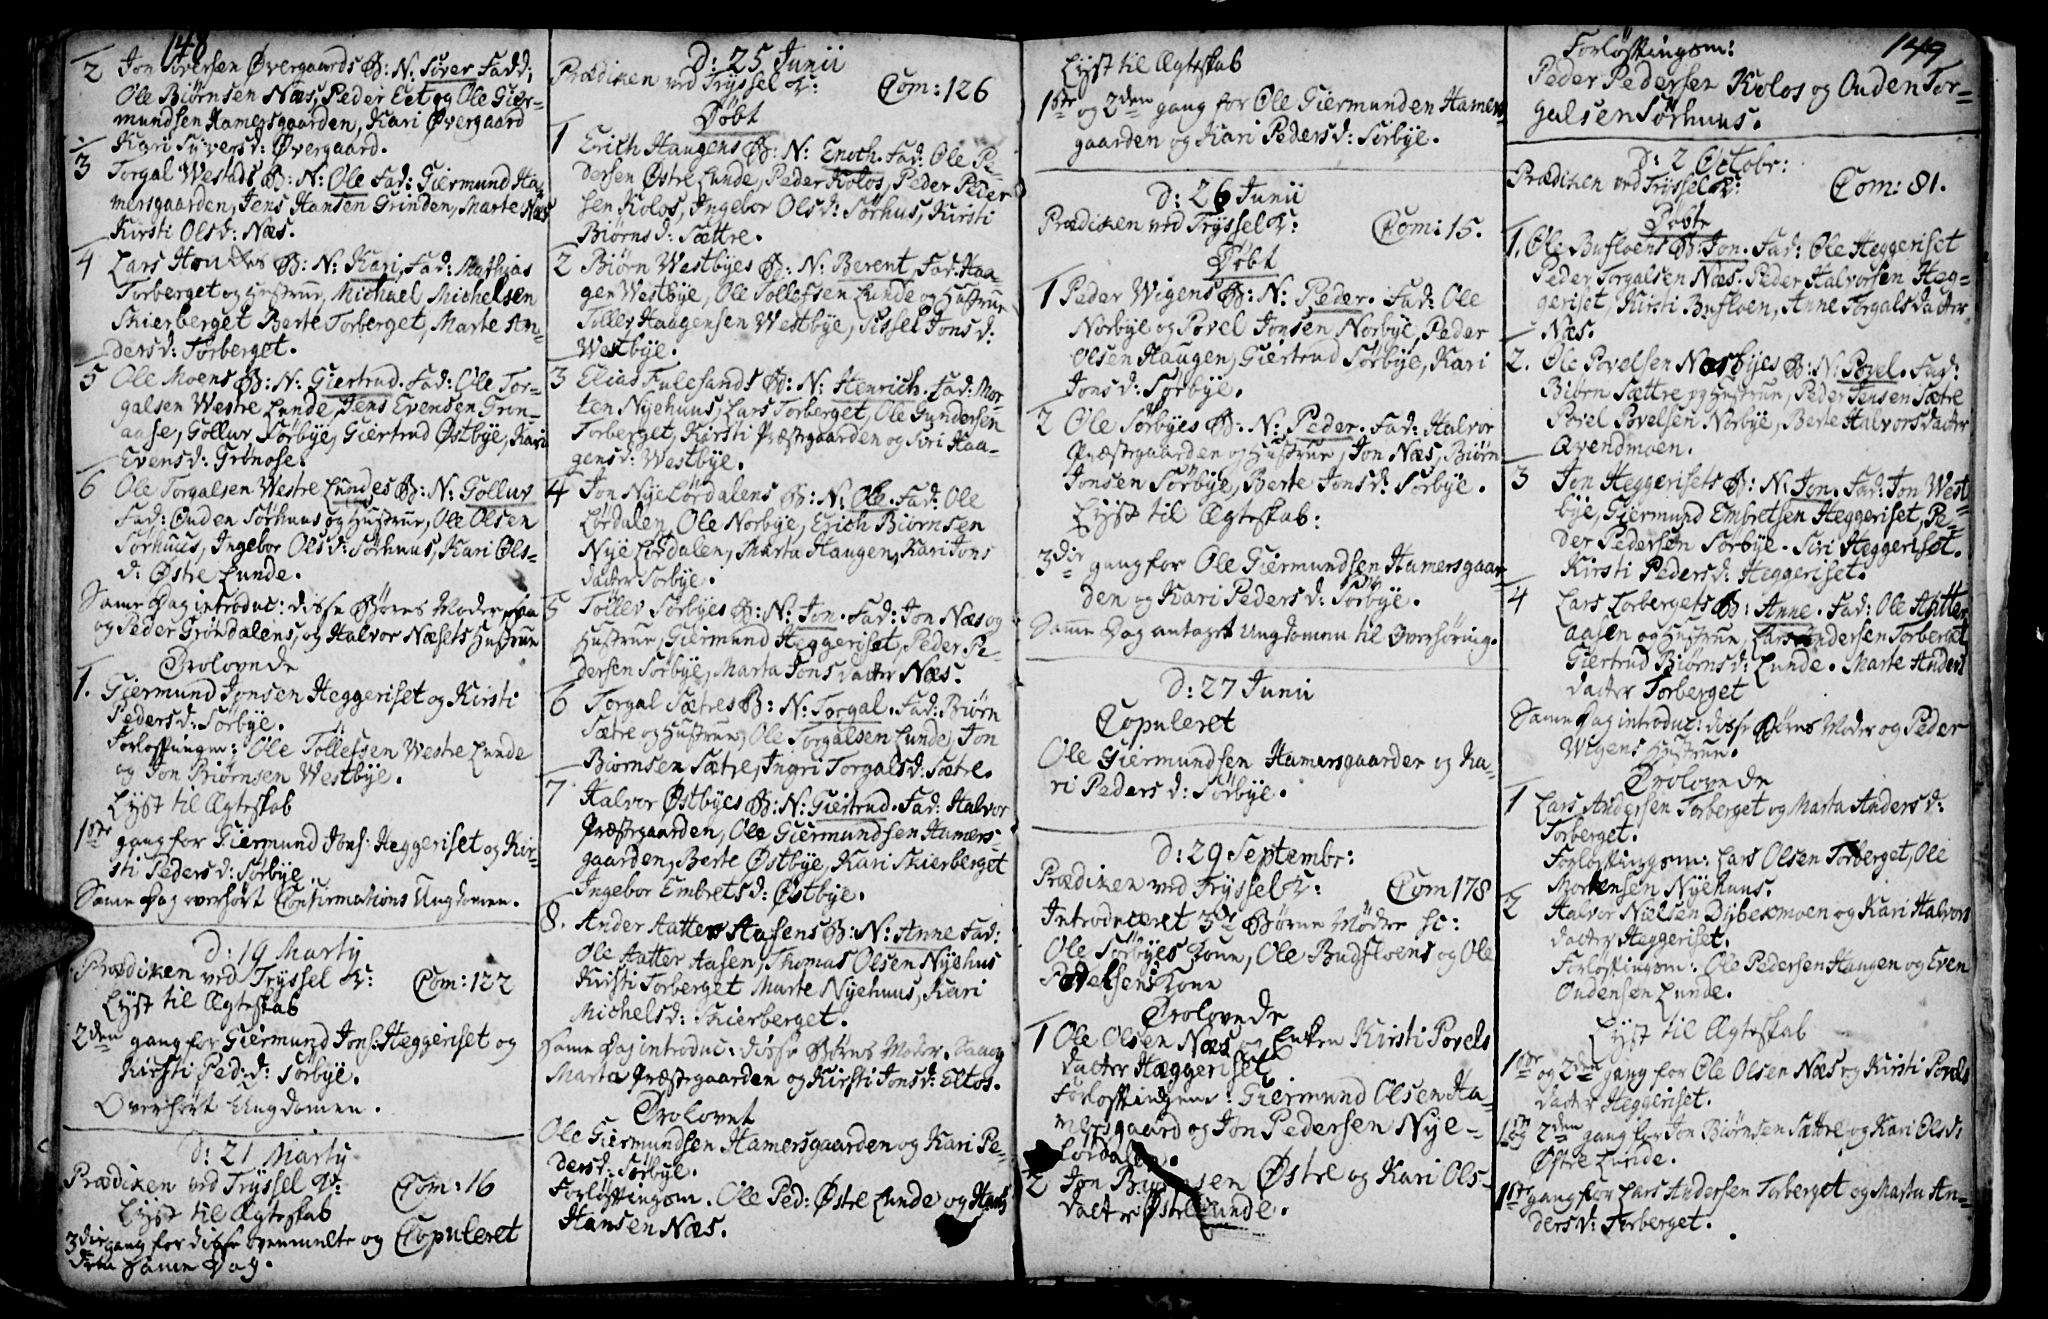 148
2 Jon Sversen Øvergaards B: N: Siver Fadd:
Ole Biørnsen Næs, Peder Eet og Ole Gier-
mundsen Hamersgaarden, Kari Øvergaard
Kari Siversd: Øvergaard.
3 Torgal Westads B: N: Ole Fad: Giermund Ha-
mersgaarden, Jens Hansen Grinden, Marte Næs
Kirsti Olsd: Næs.
4 Lars B: N: Kari, Fad: Mathias
Torberget og Hustrue, Michael Michelsen
Skierberget Berte Torberget, Marte An-
dersd: Torberget.
5 Ole Moens B: N: Giertrud. Fad: Ole Tor-
galsen Westre Lunde, Jens Evensen Grøn-
aase, Gollus Sørbye, Giertrud Østbye, Kari
Evensd: Grønose.
6 Ole Torgalsen Westre Lundes B: N: Gollus
Fad: Ouden Sørhuus og Hustrue, Ole Olsen
Sørhuus, Ingebor Olsd: Sørhuus, Kari Ols-
d: Østre Lunde.
Same Dag introduc: disse Børns Moder
og Peder Grøndalens, og Halvor Næsets Hustrue
Trolovede
1. Giermund Jonsen Heggeriset og Kirsti
Pedersd: Sørbye.
Forløftingm: Ole Tollefsen Westre Lunde
og Jon Biørnsen Westbye.
Lyst til Ægteskab
1ste gang for Giermund Jons: Heggeriset og Kir-
sti Pedersd: Sørbye
Same Dag overhørt Confirmations Ungdomen.
D: 19 Martij
Prædiken ved Tryssel K: Com: 122
Lyst til Ægteskab
2den gang for Giermund Jons: Heggeriset og
Kirsti Ped:d: Sørbye.
Overhørt Ungdomen.
D: 21 Martij
Prædiken ved Tryssel K: Com: 16
Lyst til Ægteskab
3die gang for disse ovenmelte og Copuleret
dem Same Dag.
D: 25 Junii
Prædiken ved Tryssel K: Com: 126
Døbt
1 Erich Haugens B: N: Enoth. Fad: Ole Pe-
dersen Østre Lunde, Peder Kolos, Peder Peder
sen Kolos, Ingebor Olsd: Sørhus, Kirsti
Biørnsd: Sættre.
2 Biørn Westbyes B: N: Berent, Fad: Haa-
gen Westbye, Ole Tollefsen Lunde og Hustrue
Tollev Haagensen Westbye, Sissel Jonsd:
Westbye.
3 Elias Fulesands B: N: Henrich. Fad: Mor-
ten Nyehuus, Lars Torberget, Ole Gundersen
Torberget, Kirsti Præstgaarden og Siri Haa-
gensd: Westbye.
4 Jon Nye Lørdalens B: N: Ole. Fad: Ole
Lørdalen, Ole Norbye, Erich Biørnsen
Nye Lørdalen, Marta Haugen, Kari Jons
datter Sorbye.
5 Tollev Sørbyes B: N: Jon. Fad: Jon Næs og
Hustrue, Giermund Heggeriset, Peder Pe-
dersen Sorbye, Marta Jons datter Næs.
6 Torgal Sætres B: N: Torgal. Fad: Biørn
Sætre og Hustrue, Ole Torgalsen Lunde, Jon
Biørnsen Sætre, Ingri Torgalsd: Sætre.
7 Halvor Østbyes B: N: Giertrud. Fad: Halvor
Præstgaarden, Ole Giermundsen Hamers-
gaarden, Berte Østbye, Kari Skierberget
Ingebor Embretsd: Østbye.
8. Ander Aatter Aasens B: N: Anne Fad:
Ole Aatter Aasen, Thomas Olsen Nyehus
Kirsti Torberget Marte Nyehuus, Kari
Michelsd: Skierberget.
Same Dag introduc: disse Børns Moder.
Marta Præstgaarden og Kirsti Jonsd: Eltos.
Trolovet
Ole Giermundsen Hamersgaarden og Kari Pe-
dersd: Sørbye.
Forløftingsm. Ole Ped: Østre Lunde og
Hansen Næs.
Lyst til Ægteskab
1ste og 2den gang for Ole Giermunden Hamers-
gaarden og Kari Pedersd: Sørbye.
D: 26 Junii
Prædiken ved Tryssel K: Com: 15.
Døbt
1 Peder Wigens B: N: Peder. Fad: Ole
Norbye og Povel Jonsen Norbye, Peder
Olsen Haugen, Giertrud Sørbye, Kari
Jonsd: Sørbye.
2 Ole Sørbyes B: N: Peder. Fad: Halvor
Præstgaarden og Hustrue, Jon Næs, Biørn
Jonsen Sørbye, Berte Jonsd: Sorbye.
Lyst til Ægteskab:
3die gang for Ole Giermundsen Hamersgaar-
den og Kari Pedersd: Sørbye.
Same Dag antaget Ungdomen til Overhøring.
D: 27 Junii
Copuleret
Ole Giermundsen Hamersgaarden og Ka-
ri Pedersd: Sørbye.
D: 29 Septembr:
Prædiken ved Tryssel K: Com 178
Introduceret 3de Børne Mødre sc:
Ole Sørbyes Kone, Ole Budfloens og Ole
Povelsens Kone
Trolovede
1 Ole Olsen Næs og Enken Kirsti Povels
datter Heggeriset
Forløftingsm: Giermund Olsen Ha-
mersgaard og Jon Pedersen Nye-
Lørdalen.
2 Jon Østre og Kari Ols-
datter Østre Lunde.
149
Forløftingsm:
Peder Pedersen Kolos og Ouden Tor-
galsen Sørhuus.
D: 2 Octobr:
Prædiken ved Tryssel K: Com: 81.
Døbte
1. Ole Bufloens B: Jon. Fad: Ole Heggeriset
Peder Torgalsen Næs. Peder Halvorsen Heg-
geriset, Kirsti Bufloen, Anne Torgals datter
Næs.
2. Ole Povelsen Norbyes B: N: Povel. Fad:
Biørn Sættre og Hustrue, Peder Jensen Sætre
Povel Povelsen Norbye, Berte Halvorsdatter
Qvendmoen.
3 Jon Heggerisets B: N: Jon. Fad: Jon West
bye, Giermund Embretsen Heggeriset, Pe-
der Pedersen Sorbye. Siri Heggeriset.
Kirsti Pedersd: Heggeriset.
4 Lars Torbergets B: Anne. Fad: Ole Aatter
aasen og Hustrue, Lars Andersen Torberget
Giertrud Biørnsd: Lunde. Marte Anders
datter Torberget
Same Dag introduc: disse Børns Moder og Peder
Wigens Hustrue.
Trolovede
1 Lars Andersen Torberget og Marta Andersd:
Torberget.
Forløftingsm: Lars Olsen Torberget, Ole
Mortensen Nyehuus.
2 Halvor Nielsen Dybesmoen og Kari Halvors
datter Heggeriset.
Forløftingsm: Ole Pedersen Haugen og Even
Oudensen Lunde.
Lyst til Ægteskab
1ste og 2den gang for Ole Olsen Næs og Kirsti Povels
datter Heggeriset.
1ste og 2den gang for Jon Biørnsen Sættre og Kari Olsd:
Østre Lunde.
1ste gang for Lars Andersen Torberget og Marta An-
dersd: Torberget.